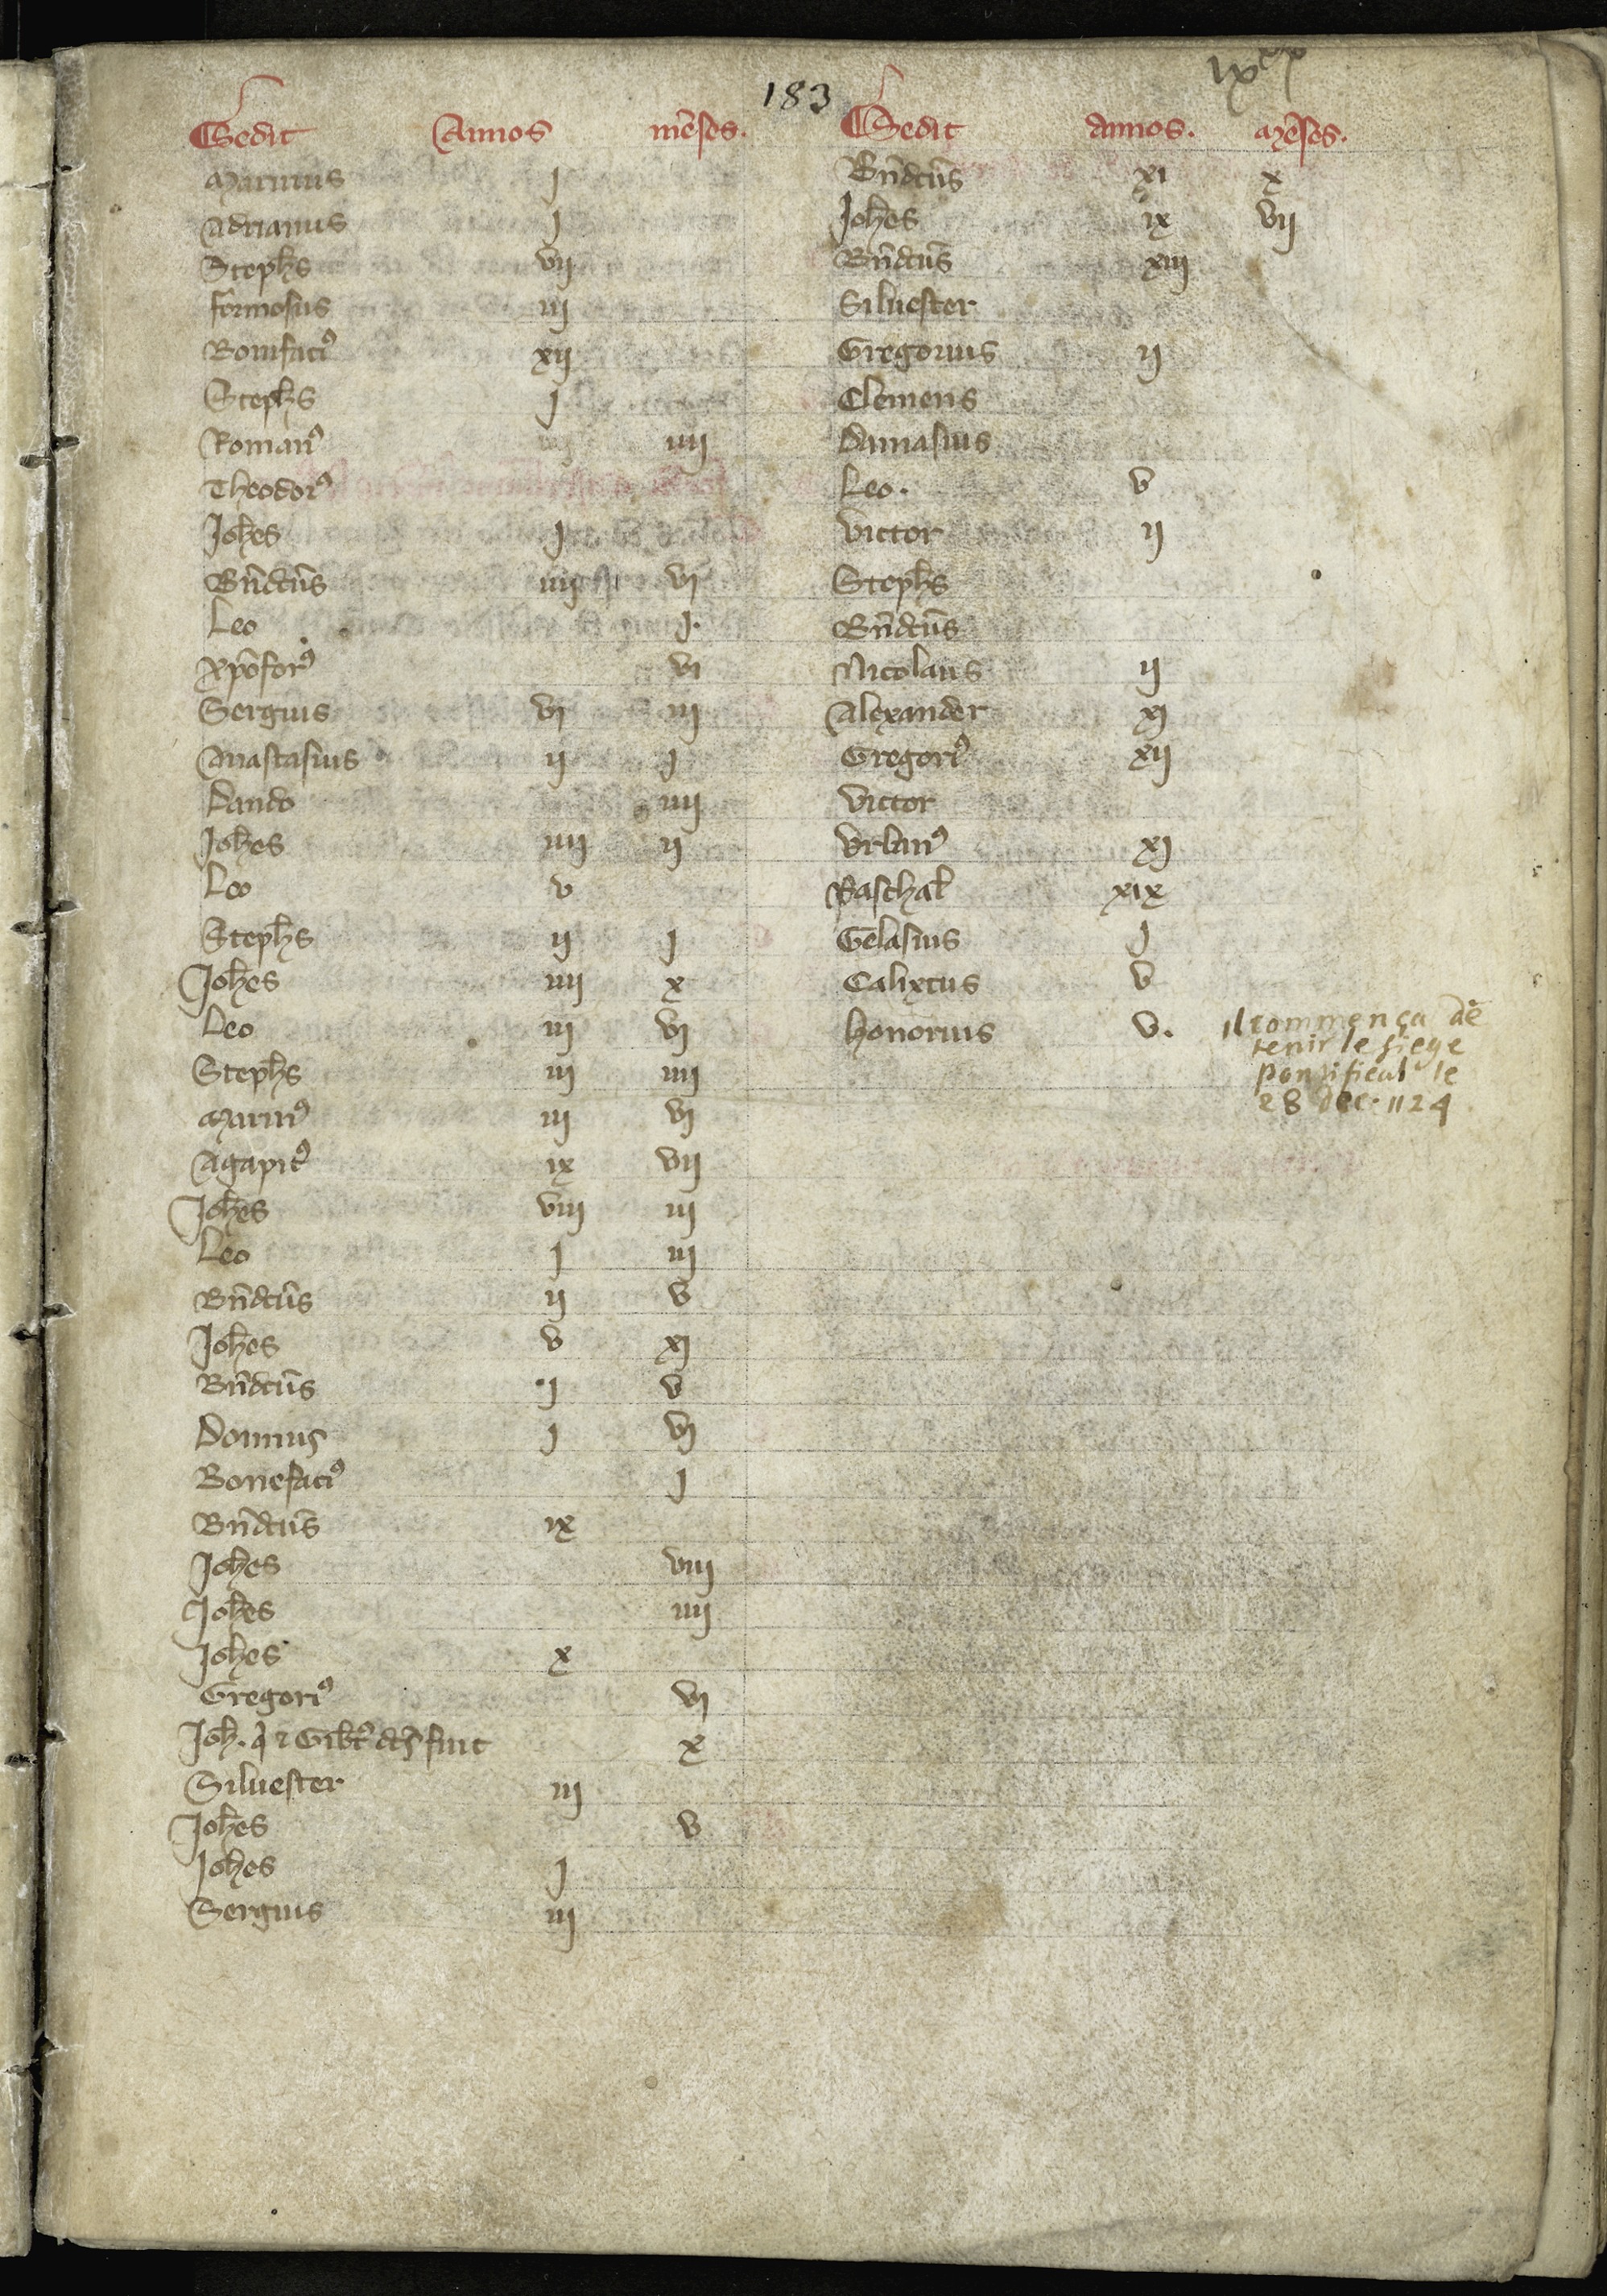 183
ixxx
Sedit Annos mēses.
Marinus j
Adrianus j
Stephs vij
formosus iij
Bonifaciꝰ xij
Stephs j
Romanꝰ iiij
Theodorꝰ
Johes j
Bn̄dcūs iiij vj
Leo j.
Xpōforꝰ vj
Sergius vj iij
Anastasius ij j
Lando iiij
Johes iiij ij
Leo v
Stephs ij j
Johes iiij x
Leo iij vj
Stephs iij iiij
Marinꝰ iij vj
Agapitꝰ ix vij
Johes viij iij
Leo j iij
Bn̄dcūs ij v
Johes v xj
Bn̄dcūs j v
Donnus j vj
Bonefaciꝰ j
Bn̄dcūs ix
Johes viij
Johes iiij
Johes x
Gregoriꝰ vj
Joh. q̄ ⁊ Gibtꝰ dc̄s fuit x
Siluester iij
Johes v
Johes j
Sergius iij
Sedit annos. mēses.
Bn̄dcūs xi x
Johes ix vij
Bn̄dcūs xiij
Siluester
Gregorius ij
Clemens
Damasius
Leo. v
Victor ij
Stephs
Bn̄dcūs
Nicolaus ij
Alexander xj
Gregoriꝰ xij
Victor
Vrbanꝰ xj
Paschał xix
Gelasius j
Calixtus v
honorius v.
Il commença de
tenir le siege
pontifical le
28 dec. 1124